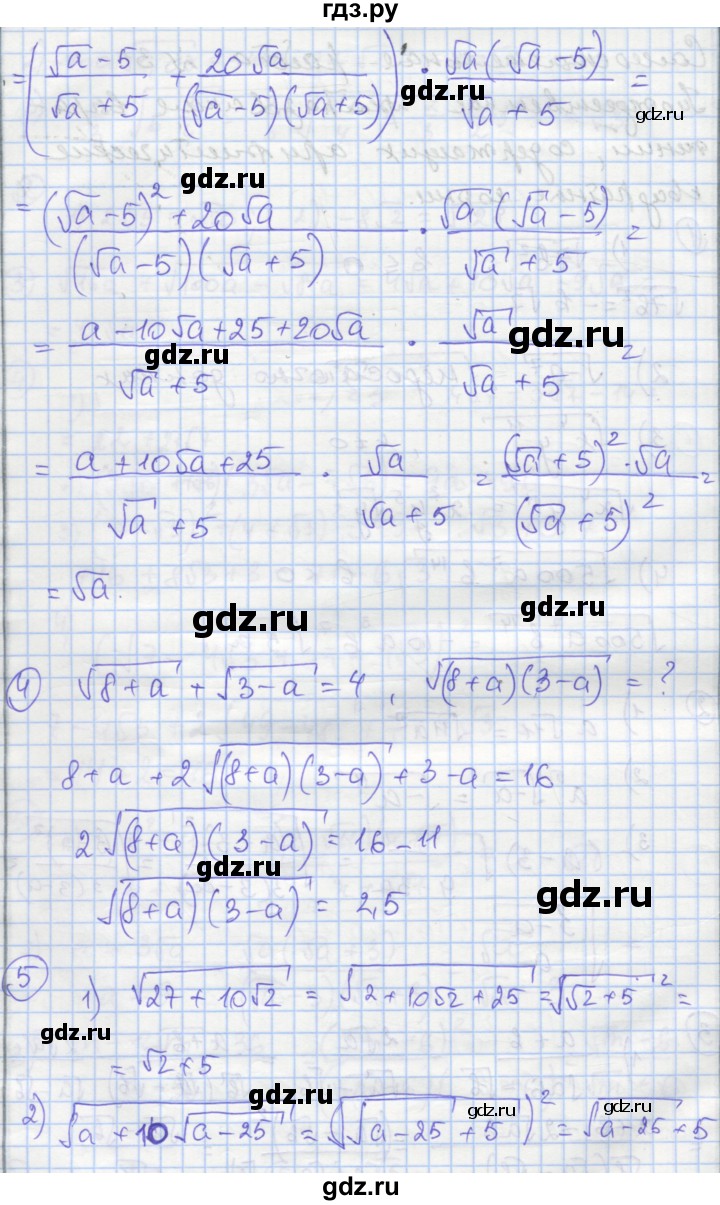 гдз.ру
= ( (√a - 5)/(√a + 5) + 20√a/((√a - 5)(√a + 5)) ) · √a(√a - 5)/(√a + 5) =
gdz.ru
gdz.ru
gdz.ru
= ((√a - 5)² + 20√a)/((√a - 5)(√a + 5)) · √a(√a - 5)/(√a + 5) =
= (a - 10√a + 25 + 20√a)/(√a + 5) · √a/(√a + 5) =
gdz.ru
gdz.ru
= (a + 10√a + 25)/(√a + 5) · √a/(√a + 5) = (√a + 5)² · √a/(√a + 5)² =
= √a.
gdz.ru
gdz.ru
④ √(8+a) + √(3-a) = 4, √((8+a)(3-a)) = ?
8+a + 2√((8+a)(3-a)) + 3-a = 16
2√((8+a)(3-a)) = 16 - 11
gdz.ru
√((8+a)(3-a)) = 2,5
gdz.ru
⑤ 1) √(27 + 10√2) = √(2 + 10√2 + 25) = √(√2 + 5)² =
gdz.ru
= √2 + 5
gdz.ru
gdz.ru
gdz.ru
2) √(a + 10√(a-25)) = √(√(a-25) + 5)² = √(a-25) + 5
gdz.ru
gdz.ru